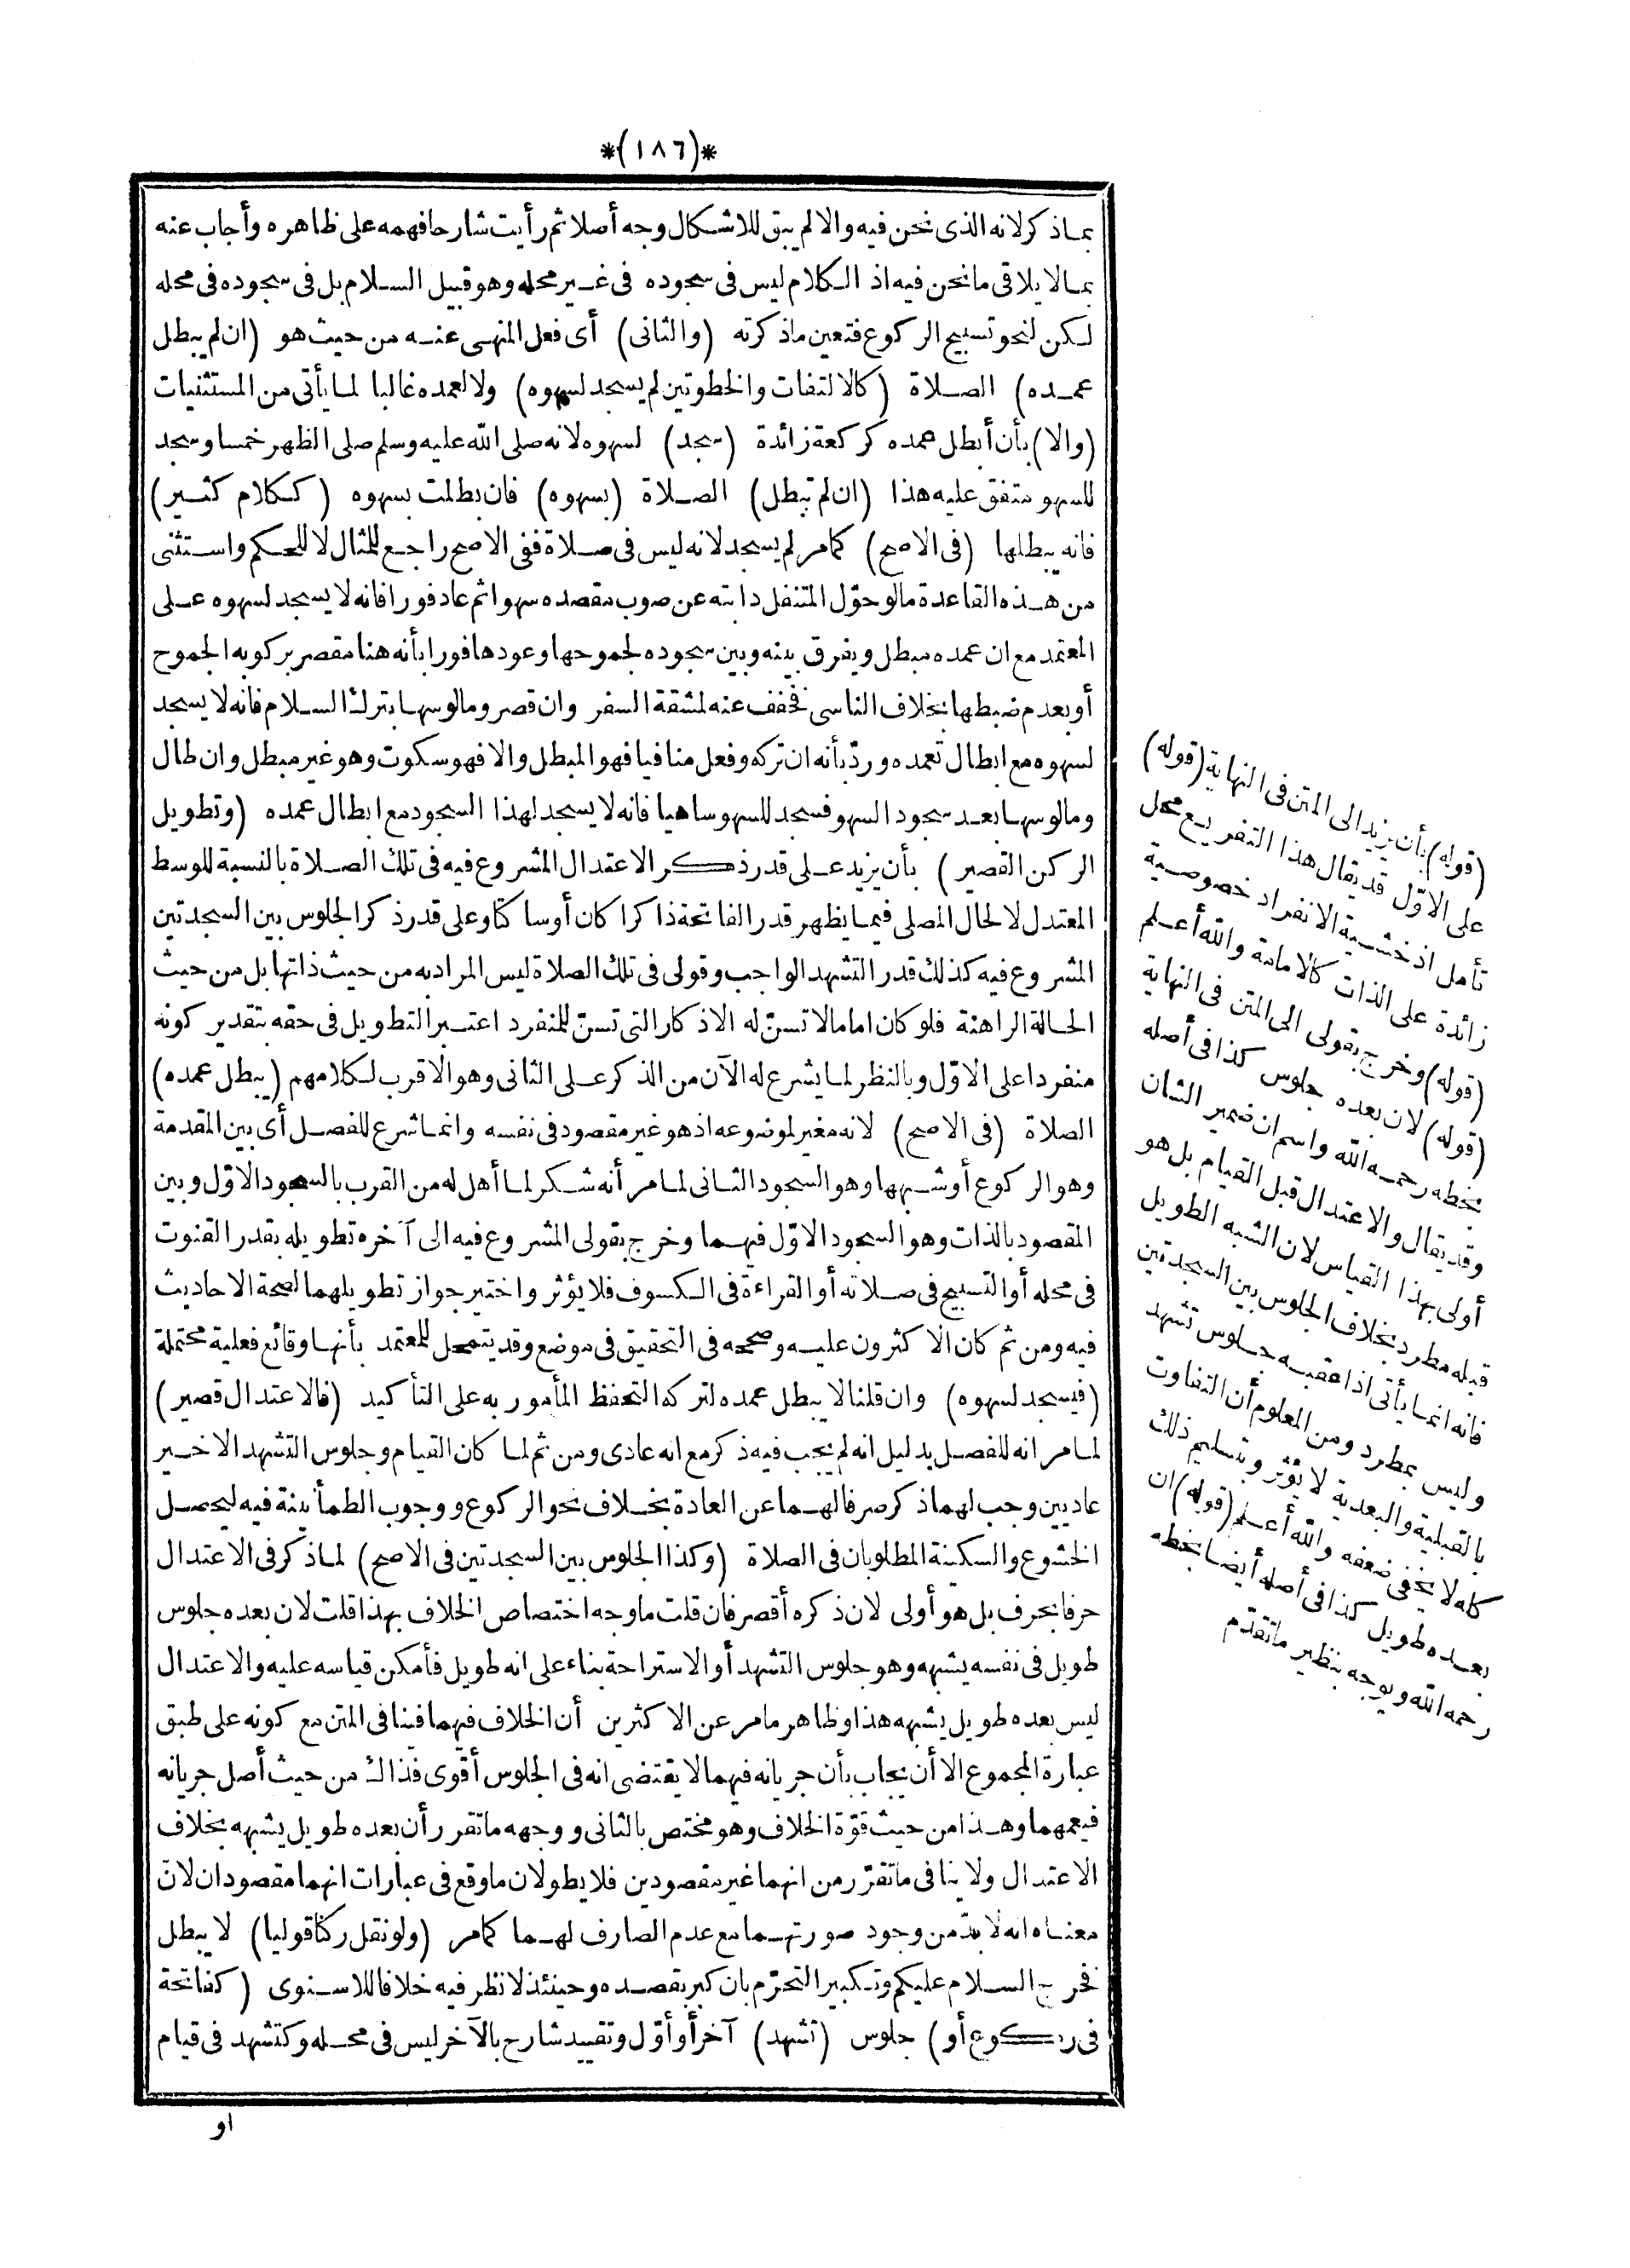 *(١٨٦)*
بما ذكر لانه الذى نحن فيه والا لم يبق للاشكال وجه أصلا ثم رأيت شارحا فهمه على ظاهره وأجاب عنه
بما لا يلاقى ما نحن فيه اذ الكلام ليس فى سجوده فى غير محله وهو قبيل السلام بل فى سجوده فى محله
لكن لنحو تسبيح الركوع فتعين ماذكرته (والثانى) أى فعل المنهى عنه من حيث هو (ان لم يبطل
عمده) الصلاة (كالالتفات والخطوتين لم يسجد لسهوه) ولا لعمده غالبا لما يأتى من المستثنيات
(والا) بأن أبطل عمده كركعة زائدة (سجد) لسهوه لانه صلى الله عليه وسلم صلى الظهر خمسا وسجد
للسهو متفق عليه هذا (ان لم تبطل) الصلاة (بسهوه) فان بطلت بسهوه (ككلام كثير)
فانه يبطلها (فى الاصح) كمامر لم يسجد لانه ليس فى صلاة ففى الاصح راجع للمثال لا للحكم واستثنى
من هذه القاعدة مالو حوّل المتنفل دابته عن صوب مقصده سهوا ثم عاد فورا فانه لا يسجد لسهوه على
المعتمد مع ان عمده مبطل ويفرق بينه وبين سجوده لجموحها وعودها فورا بأنه هنا مقصر بركوبه الجموح
أو بعدم ضبطها بخلاف الناسى فخفف عنه لمشقة السفر وان قصر ومالو سها بترك السلام فانه لا يسجد
لسهوه مع ابطال تعمده وردّ بأنه ان تركه وفعل منافيا فهو المبطل والا فهو سكوت وهو غير مبطل وان طال
ومالو سها بعد سجود السهو فسجد للسهو ساهيا فانه لا يسجد لهذا السجود مع ابطال عمده (وتطويل
الركن القصير) بأن يزيد على قدر ذكر الاعتدال المشروع فيه فى تلك الصلاة بالنسبة للوسط
المعتدل لا لحال المصلى فيما يظهر قدر الفاتحة ذاكرا كان أو ساكتا وعلى قدر ذكر الجلوس بين السجدتين
المشروع فيه كذلك قدر التشهد الواجب وقولى فى تلك الصلاة ليس المراد به من حيث ذاتها بل من حيث
الحالة الراهنة فلو كان اماما لا تسنّ له الاذكار التى تسنّ للمنفرد اعتبر التطويل فى حقه بتقدير كونه
منفردا على الاوّل وبالنظر لما يشرع له الآن من الذكر على الثانى وهو الاقرب لكلامهم (يبطل عمده)
الصلاة (فى الاصح) لانه مغير لموضوعه اذ هو غير مقصود فى نفسه وانما شرع للفصل أى بين المقدمة
وهو الركوع أو شبهها وهو السجود الثانى لمامر أنه شكر لما أهل له من القرب بالسجود الاوّل وبين
المقصود بالذات وهو السجود الاوّل فيهما وخرج بقولى المشروع فيه الى آخره تطويله بقدر القنوت
فى محله أو التسبيح فى صلاته أو القراءة فى الكسوف فلا يؤثر واختير جواز تطويلهما لصحة الاحاديث
فيه ومن ثم كان الاكثرون عليه وصححه فى التحقيق فى موضع وقد يتمحل للمعتمد بأنها وقائع فعلية محتملة
(فيسجد لسهوه) وان قلنا لا يبطل عمده لتركه التحفظ المأمور به على التأكيد (فالاعتدال قصير)
لمامر انه للفصل بدليل انه لم يجب فيه ذكر مع انه عادى ومن ثم لما كان القيام وجلوس التشهد الاخير
عاديين وجب لهما ذكر صرفا لهما عن العادة بخلاف نحو الركوع ووجوب الطمأنينة فيه ليحصل
الخشوع والسكينة المطلوبان فى الصلاة (وكذا الجلوس بين السجدتين فى الاصح) لماذكر فى الاعتدال
حرفا بحرف بل هو أولى لان ذكره أقصر فان قلت ما وجه اختصاص الخلاف بهذا قلت لان بعده جلوس
طويل فى نفسه يشبهه وهو جلوس التشهد أو الاستراحة بناء على انه طويل فأمكن قياسه عليه والاعتدال
ليس بعده طويل يشبهه هذا وظاهر مامر عن الاكثرين أن الخلاف فيهما فينافى المتن مع كونه على طبق
عبارة المجموع الا أن يجاب بأن جريانه فيهما لا يقتضى انه فى الجلوس أقوى فذاك من حيث أصل جريانه
فيعمهما وهذا من حيث قوّة الخلاف وهو مختص بالثانى ووجهه ماتقرر أن بعده طويل يشبهه بخلاف
الاعتدال ولا ينافى ماتقرّر من انهما غير مقصودين فلا يطولان ماوقع فى عبارات انهما مقصودان لانّ
معناه انه لابدّ من وجود صورتهما مع عدم الصارف لهما كمامر (ولو نقل ركنا قوليا) لا يبطل
فخرج السلام عليكم وتكبير التحرّم بان كبر بقصده وحينئذ لا نظر فيه خلافا للاسنوى (كفاتحة
فى ركوع أو) جلوس (تشهد) آخر أو أوّل وتقييد شارح بالآخر ليس فى محله وكتشهد فى قيام
او
(قوله) بأن يزيد الى المتن فى النهاية (قوله)
على الاوّل قد يقال هذا التفريع محل
تأمل اذ خشية الانفراد خصوصية
زائدة على الذات كالامامة والله أعلم
(قوله) وخرج بقولى الى المتن فى النهاية
(قوله) لان بعده جلوس كذا فى أصله
بخطه رحمه الله واسم ان ضمير الشان
وقد يقال والاعتدال قبل القيام بل هو
أولى بهذا القياس لان الشبه الطويل
قبله مطرد بخلاف الجلوس بين السجدتين
فانه انما يأتى اذا عقبه جلوس تشهد
وليس بمطرد ومن المعلوم أن التفاوت
بالقبلية والبعدية لا يؤثر وبتسليم ذلك
كله لا يخفى ضعفه والله أعلم (قوله) ان
بعده طويل كذا فى أصله أيضا بخطه
رحمه الله ويوجه بنظير ماتقدّم